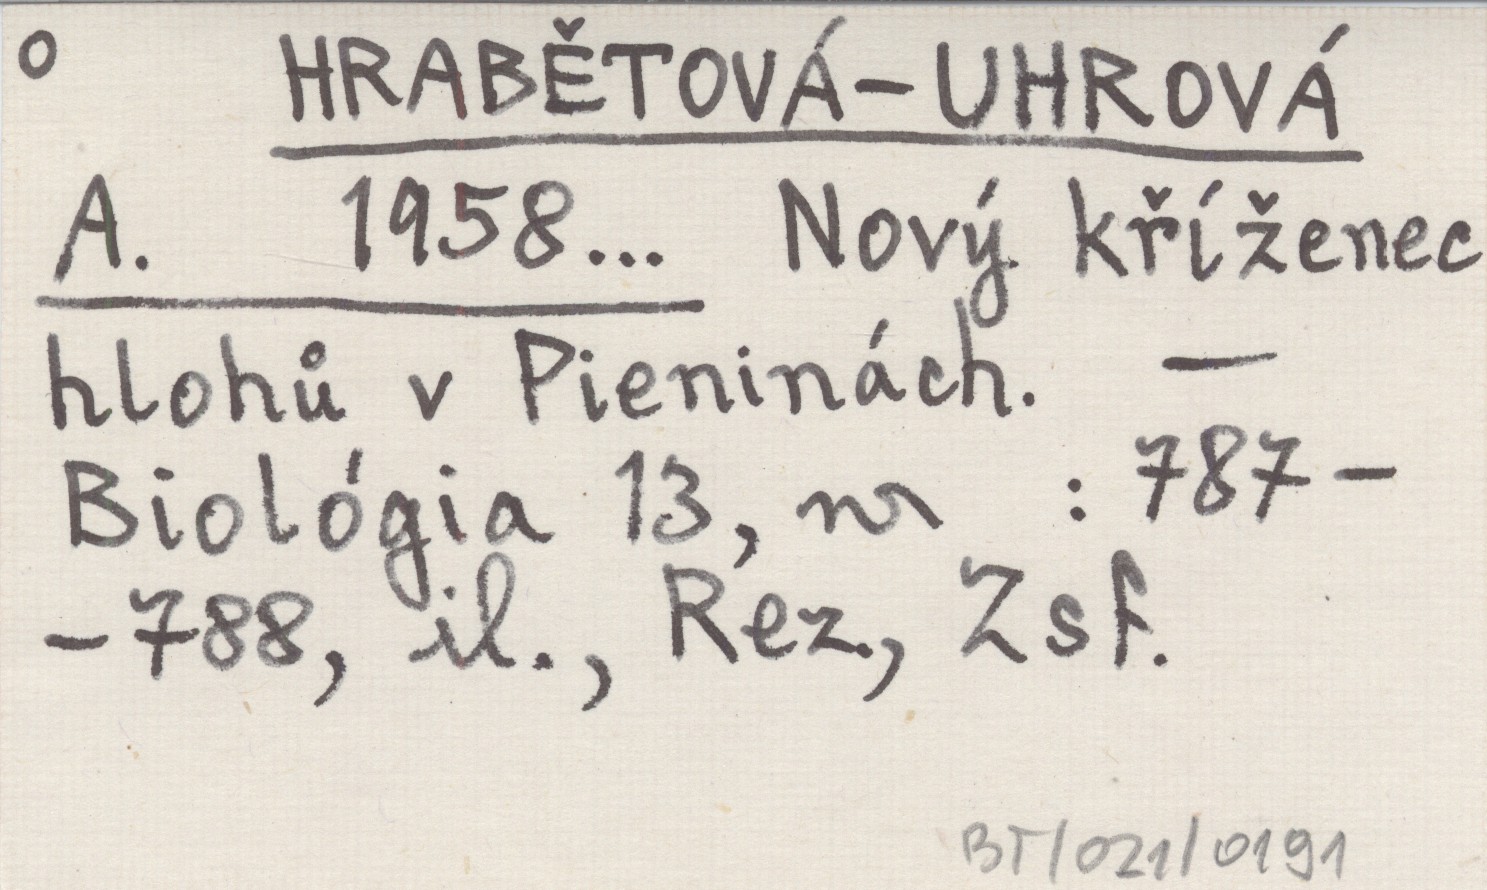 o HRABĚTOVÁ-UHROVÁ
A. 1958... Nový kříženec
hlohů v Pieninách. —
Biológia 13, nr : 787-
-788, il., Rez., Zsf.
BT/021/0191